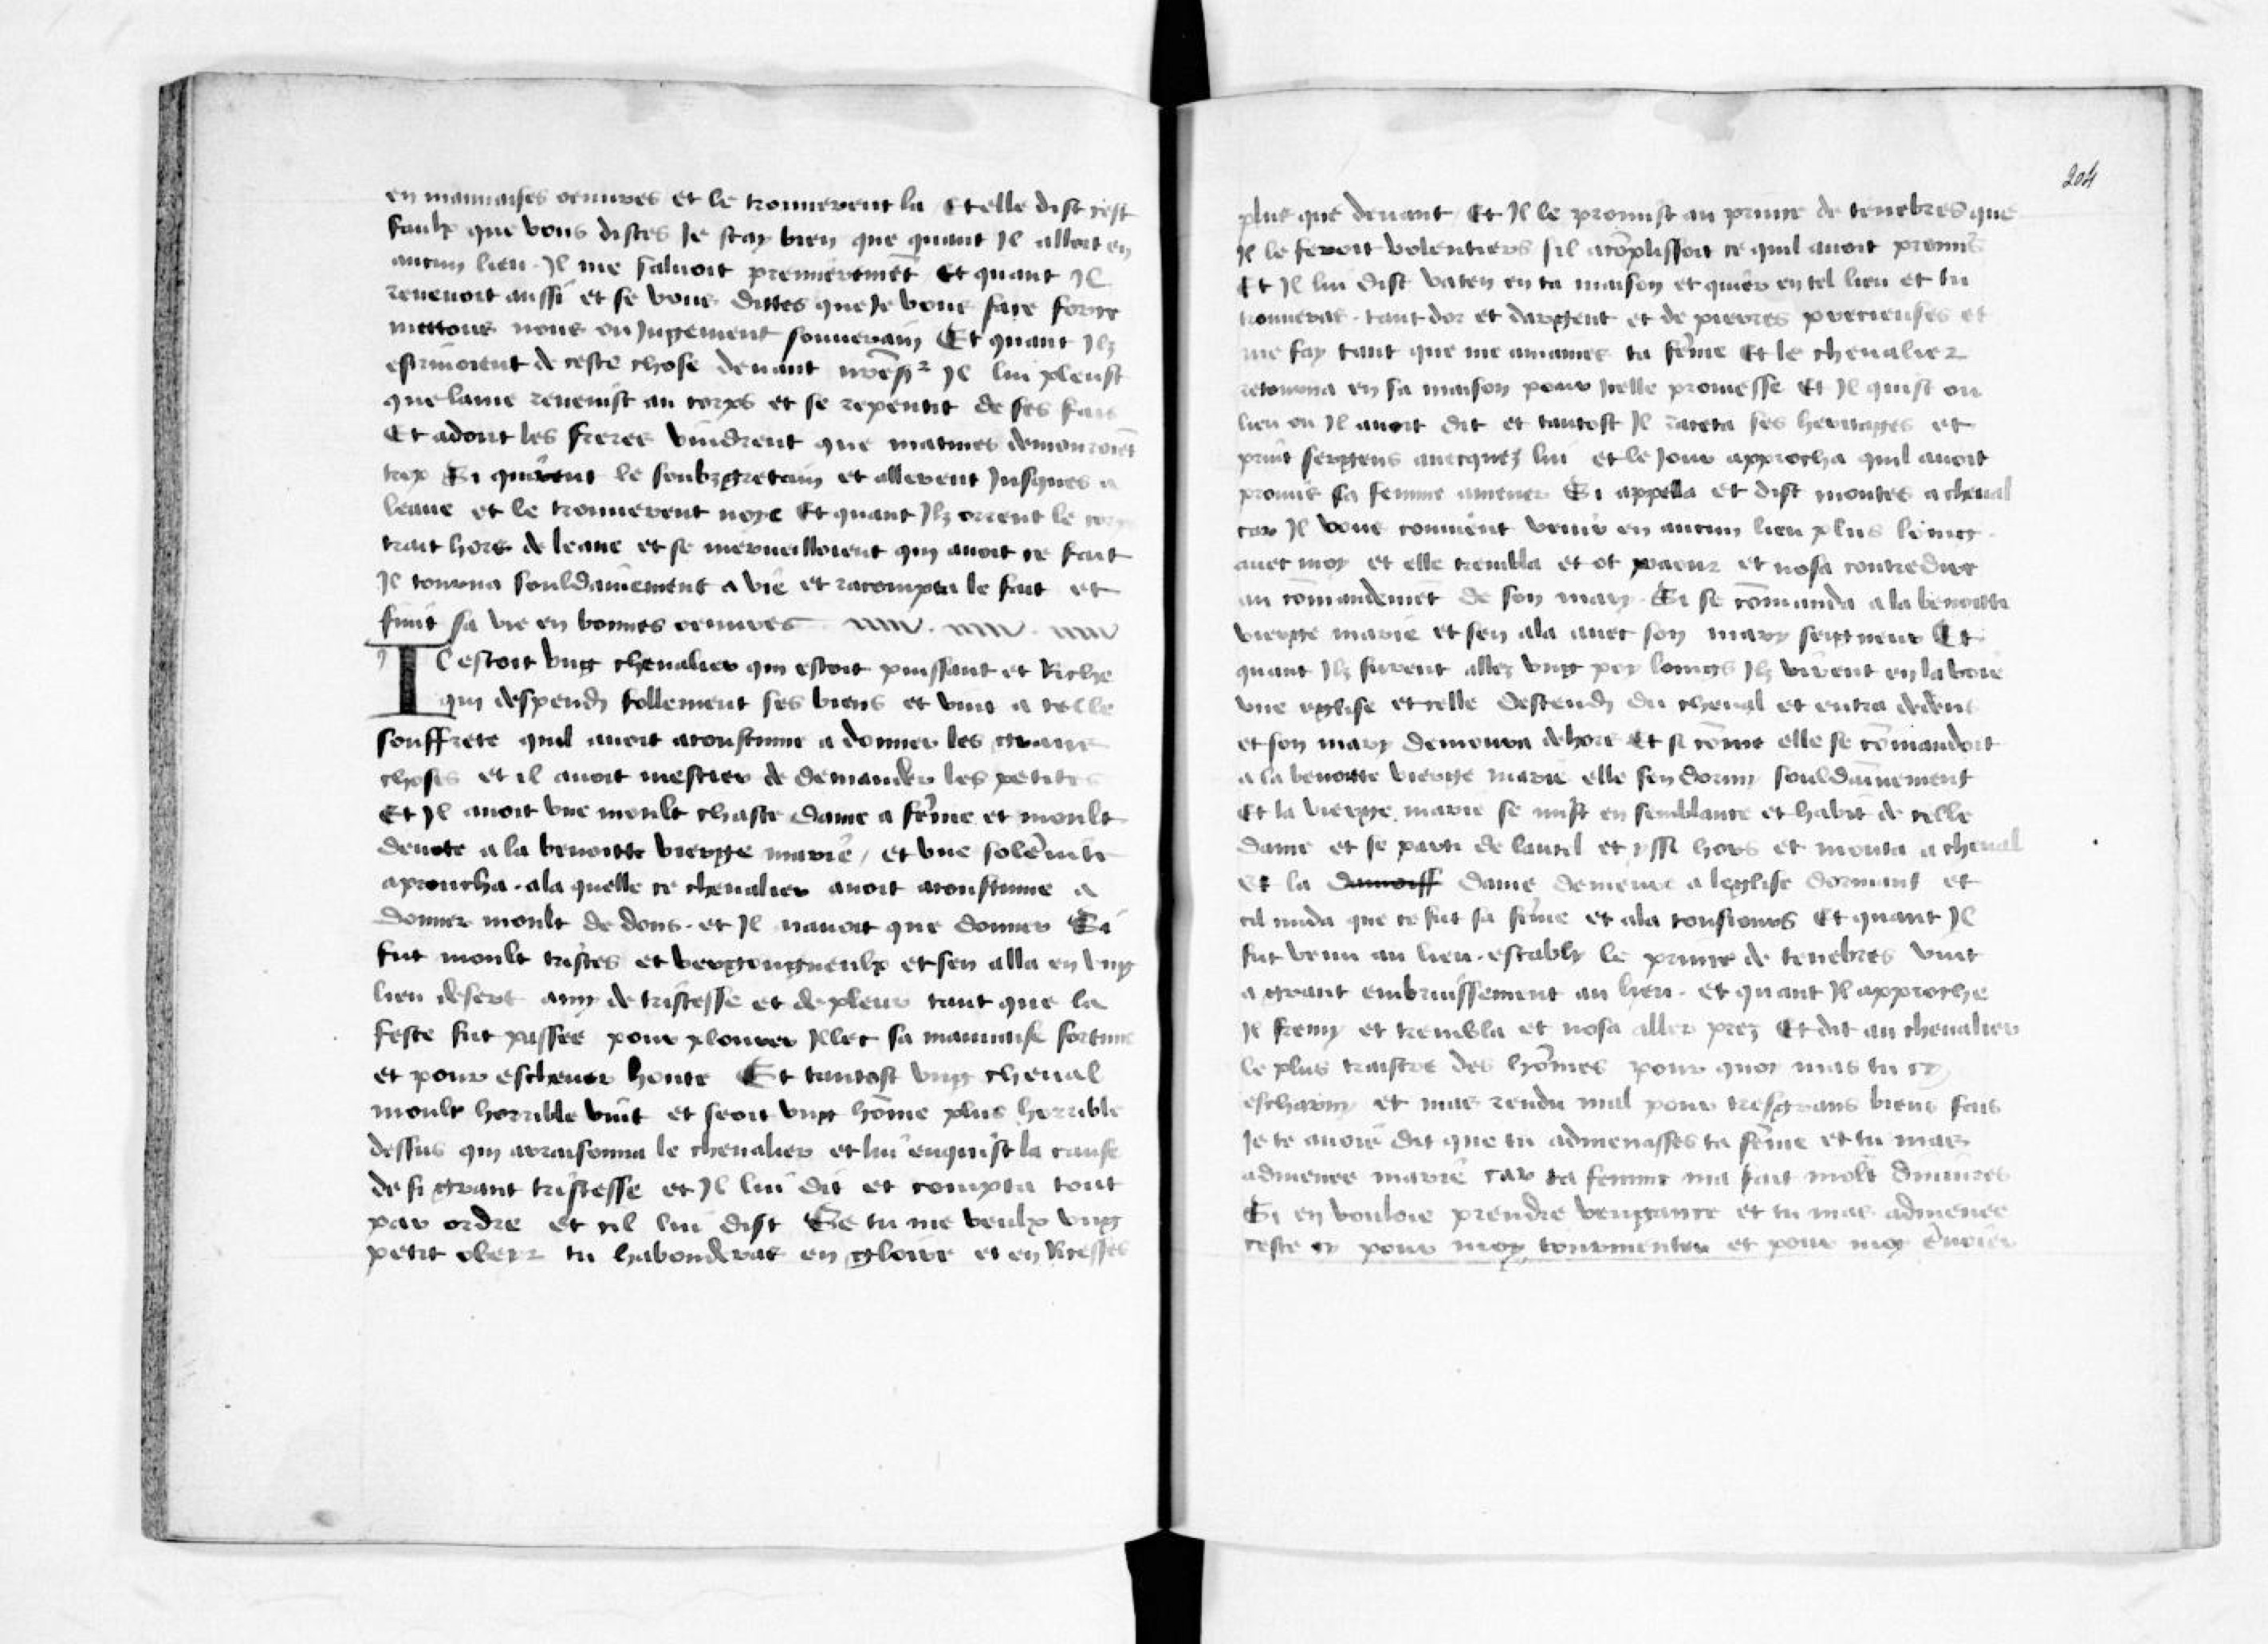 en mauuaises oeuures et le trouuerent la Et elle dist cest
faulx que vous dictes Je scay bien que quant Il alloit en
aucun lieu. Il me saluoit premieremēt Et quant Il
reuenoit aussi et se vous dittes que Je vous face force
mettons nous ou Jugement souuerain Et quant Ilz
estriuoient de ceste chose deuant nr̄e sr Il lui pleust
que lame reuenist au corps et se repentit de ses fais
Et adont les freres vindrent que matines demouroiēt
trop Si quirent le soubzgretain et allerent Jusques a
leaue et le trouuerent noye Et quant Ilz orrent le corps
trait hors de leaue et se merueilloient qui auoit ce fait
Il tourna souldainement a vie et racompta le fait et
finit sa vie en bonnes oeuures
Il estoit vng cheualier qui estoit puissant et Riche
qui despendy follement ses biens et vint a telle
souffrete quil auoit acoustume a donner les grans
choses et il auoit mestier de demander les petites
Et Il auoit vne moult chaste dame a fēme et moult
deuote a la benoitte vierge marie / et vne solēnite
aproucha. ala quelle ce cheualier auoit acoustume a
donner moult de dons. et Il nauoit que donner Si
fut moult tristes et vergongneulx et sen alla en vng
lieu desert amy de tristesse et de pleur tant que la
feste fut passee pour plourer Illec sa mauuaise fortune
et pour escheuer honte Et tantost vng cheual
moult horrible vint et seoit vng hōme plus horrible
dessus qui arraisonna le cheualier et lui enquist la cause
de si grant tristesse et Il lui dit et compta tout
par ordre et cil lui dist Se tu me veulx vng
petit obeyr tu habonderas en gloire et en Ricesses
204
plus que deuant Et Il le promist au prince de tenebres que
Il le feroit volentiers sil acōplissoit ce quil auoit promis
Et Il lui dist vaten en ta maison et quier en tel lieu et tu
trouueras. tant dor et dargent et de pierres precieuses et
me fay tant que me amaines ta fēme Et le cheualier
retourna en sa maison pour Icelle promesse Et Il quist ou
lieu ou Il auoit dit et tantost Il raceta ses heritages et
print sergens auecquez lui et le Jour approcha quil auoit
promis sa femme amener Si appella et dist montes a cheual
car Il vous conuient venir en aucun lieu plus loing.
auec moy et elle trembla et ot paour et nosa contredire
au cōmandemēt de son mary. Si se cōmanda a la benoitte
vierge marie et sen ala auec son mary seigneur Et
quant Ilz furent allez vng poy loings Ilz virent en la voie
vne eglise et celle descendy du cheual et entra dedens
et son mary demoura dehors Et si cōme elle se cōmandoit
a la benoitte vierge marie elle sen dormy souldainement
Et la vierge marie se mist en semblance et habit de celle
dame et se party de lautel et yssi hors et monta a cheual
et la damoiss dame demeure a leglise dormant et
cil cuida que ce fut sa fēme et ala tousiours Et quant Il
fut venu au lieu. estably le prince de tenebres vint
a grant embruissement au lieu. et quant Il approche
Il fremy et trembla et nosa aller prez Et dit au cheualier
le plus traistre des hōmes pour quoy mas tu cy
escharny et mas rendu mal pour tresgrans biens fais
Je te auoie dit que tu admenasses ta fēme et tu mas
admenee marie car ta femme ma fait molt diniures
Si en vouloie prendre vengance et tu mas admenee
ceste cy pour moy tourmenter et pour moy ēuoier